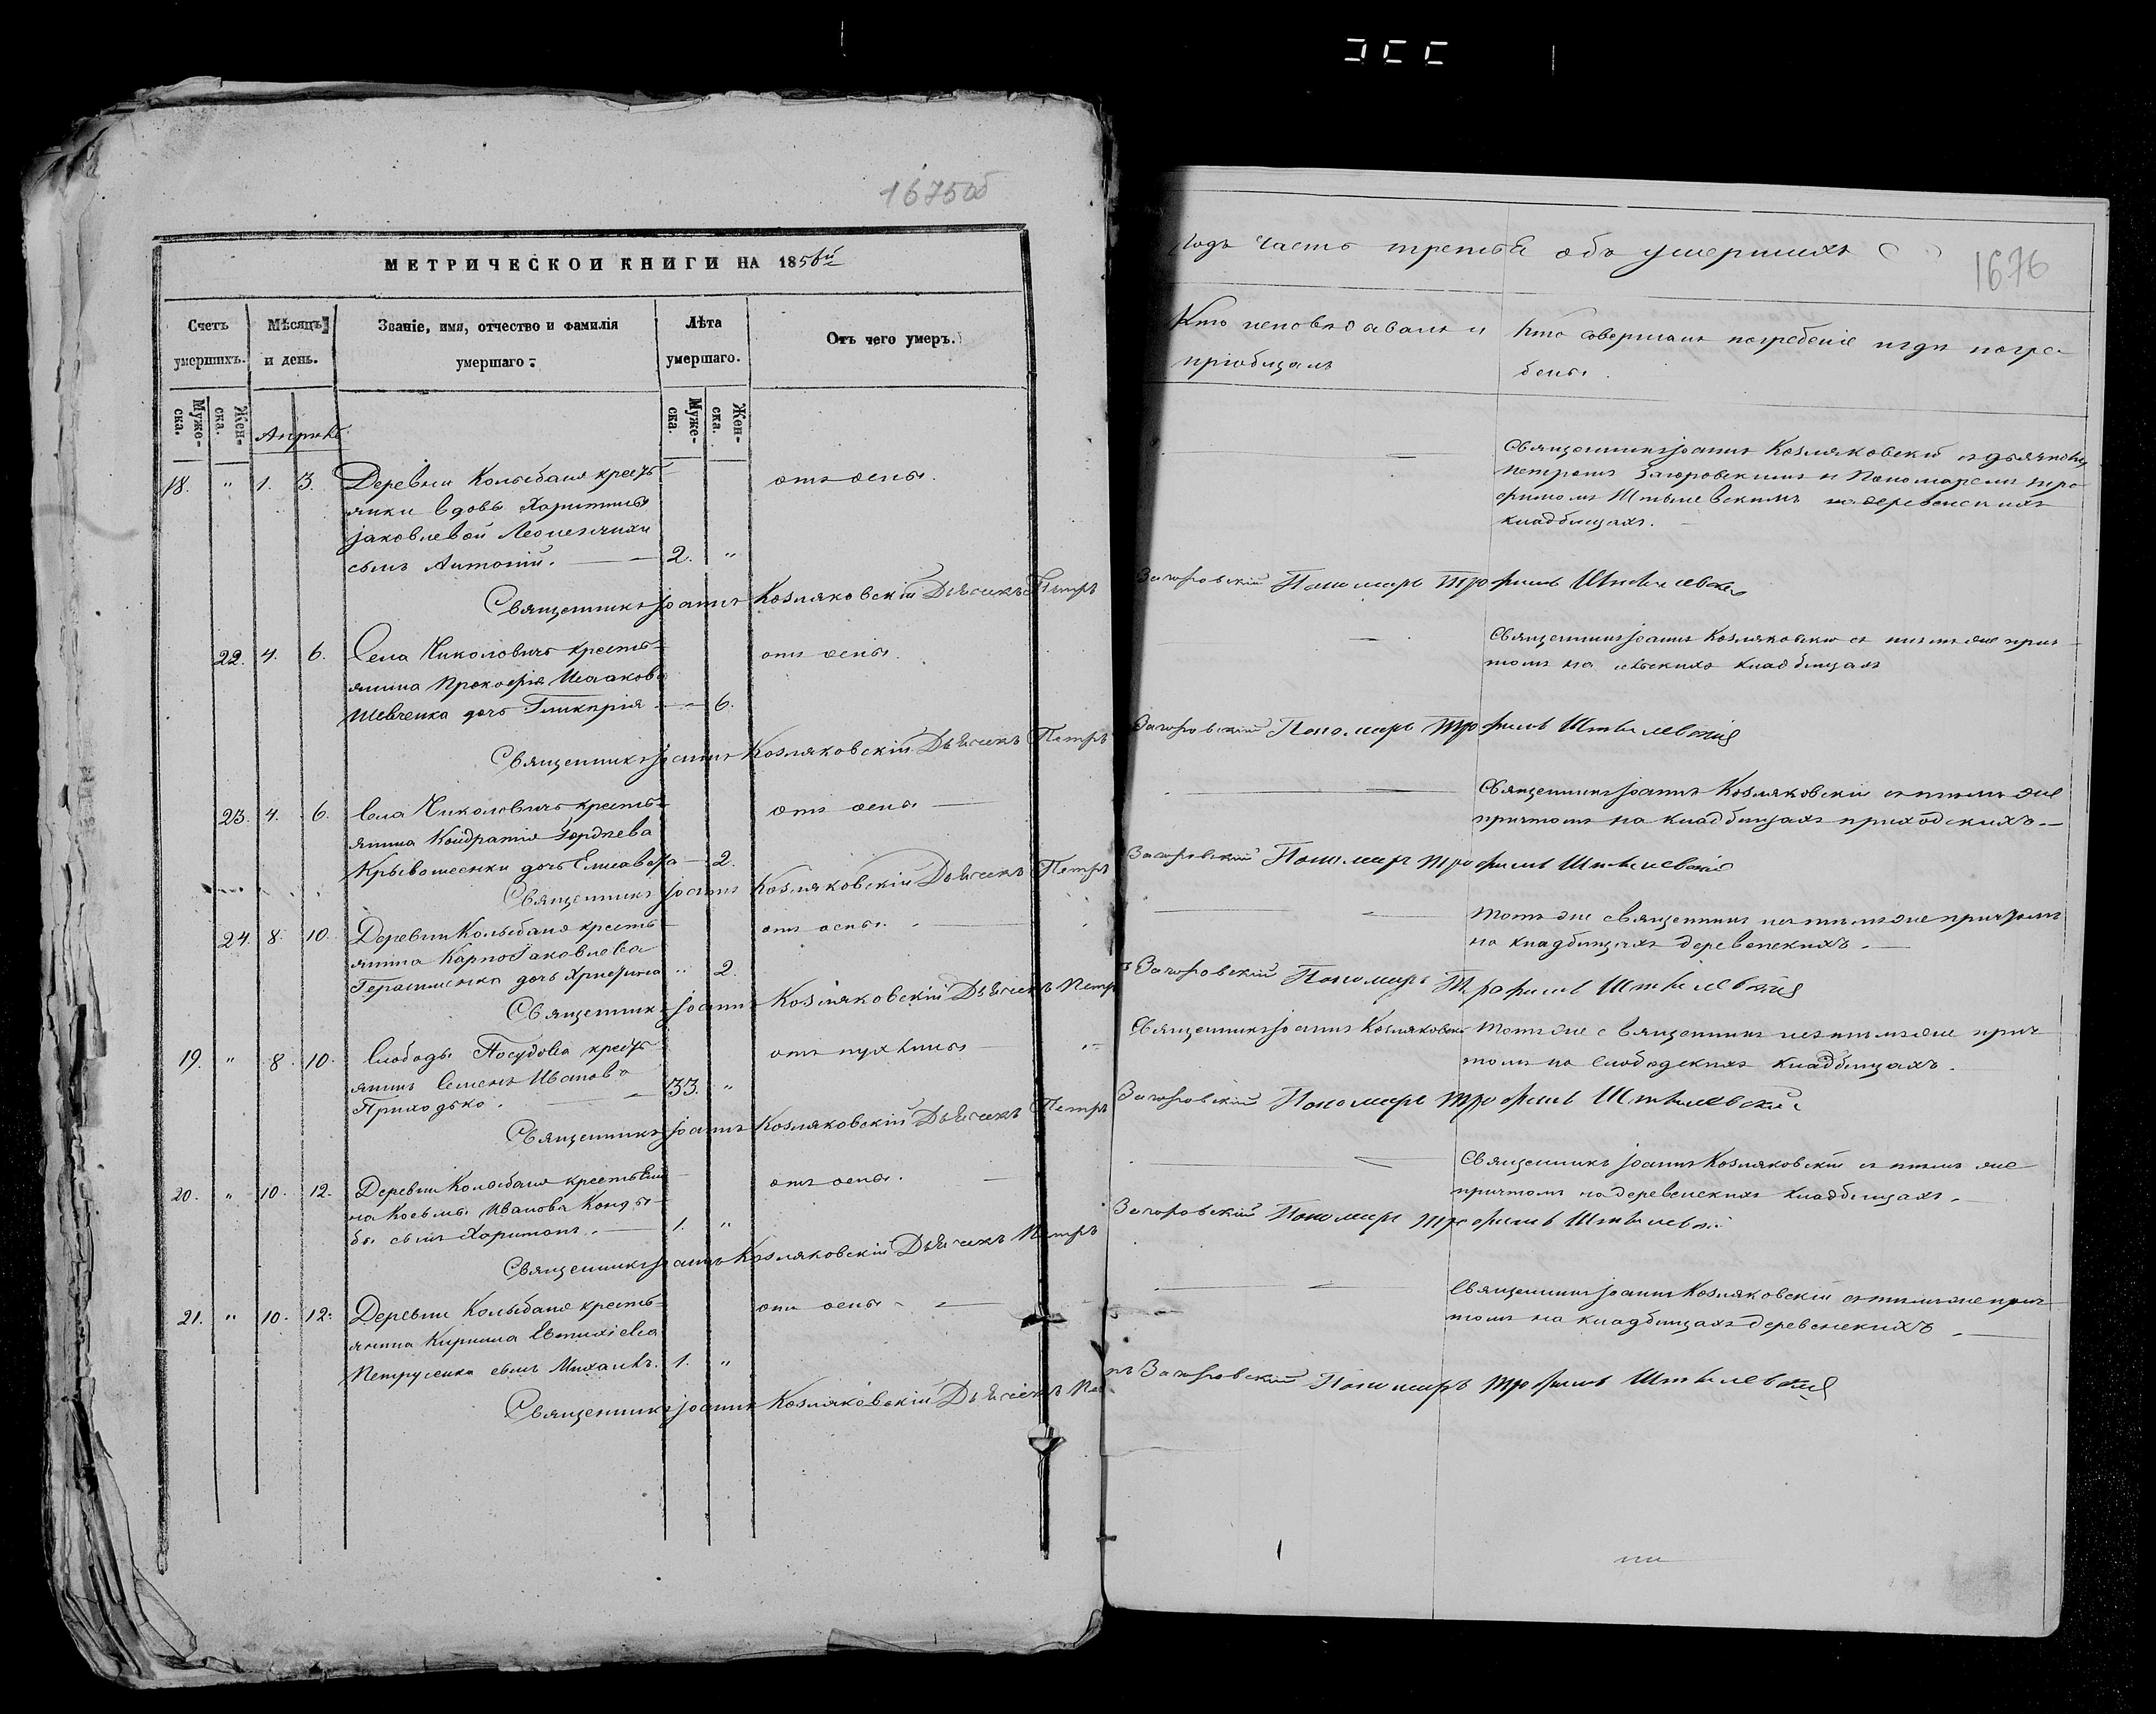 1675об
МЕТРИЧЕСКОЙ КНИГИ НА 1856й
Счетъ умершихъ.
Мѣсяцъ и день.
Званіе, имя, отчество и фамилія умершаго
Лѣта умершаго.
Отъ чего умеръ.
Муже-ска.
Жен-ска.
Муже-ска.
Жен-ска.
Апрѣль
18. " 1. 3. Деревни Колыбани кресть
янки вдовы Харитины
Іаковлевой
сынъ Антоній. 2. "
отъ оспы.
Священникъ Іоаннъ Козляковскій Дьячекъ Петръ
22. 4. 6. Села Николовичъ кресть-
янина Прокофія Исаакова
Шевченка дочь Гликирія 6.
отъ оспы.
Священникъ Іоаннъ Козляковскій Дьячекъ Петръ
23. 4. 6. Села Николовичъ кресть-
янина Кондратія Гордиева
дочь Елисавета 2.
отъ оспы
Священникъ Іоаннъ Козляковскій Дьячекъ Петръ
24. 8. 10. Деревни Колыбани кресть-
янина Карпа Іаковлева
Герасименка дочь " 2.
отъ оспы.
Священникъ Іоаннъ Козляковскій Дьячекъ Петръ
19. " 8. 10. Слободы кресть
янинъ Семенъ Иванова
Приходько. 33. "
отъ пухлины
Священникъ Іоаннъ Козляковскій Дьячекъ Петръ
20. " 10. 12. Деревни Колыбани крестьяни
на Косьмы Иванова
сынъ Харитонъ. 1. "
отъ оспы.
Священникъ Іоаннъ Козляковскій Дьячекъ Петръ
21. " 10. 12. Деревни Колыбани кресть-
янина Кирилла Евтихіева
Петрусенка сынъ Михаилъ. 1. "
отъ оспы
Священникъ Іоаннъ Козляковскій Дьячекъ
1676
Годъ часть третья объ умершихъ
Кто исповѣдавалъ и
пріобщалъ
Кто совершалъ погребеніе и гдѣ погре-
бены.
Священникъ Іоаннъ Козляковскій съ дьячкомъ
Петромъ Загоровскимъ и Пономаремъ Тро-
фимомъ на деревенскихъ
кладбищахъ.
Загоровскій Пономарь Трофимъ
Священникъ Іоаннъ Козляковскій съ тѣмъ же прич
томъ на сельскихъ кладбищахъ
Загоровскій Пономарь Трофимъ
Священникъ Іоаннъ Козляковскій съ тѣмъ же
причтомъ на кладбищахъ приходскихъ.
Загоровскій Пономарь Трофимъ
Тотъ же священникъ и съ тѣмъ же причтомъ
на кладбищахъ деревенскихъ.
Загоровскій Пономарь Трофимъ
Священникъ Іоаннъ Козляковскій
Тотъ же священникъ и съ тѣмъ же прич
томъ на слободскихъ кладбищахъ.
Загоровскій Пономарь Трофимъ
Священникъ Іоаннъ Козляковскій съ тѣмъ же
причтомъ на деревенскихъ кладбищахъ.
Загоровскій Пономарь Трофимъ
Священникъ Іоаннъ Козляковскій съ тѣмъ же прич
томъ на кладбищахъ деревенскихъ.
Загоровскій Пономарь Трофимъ